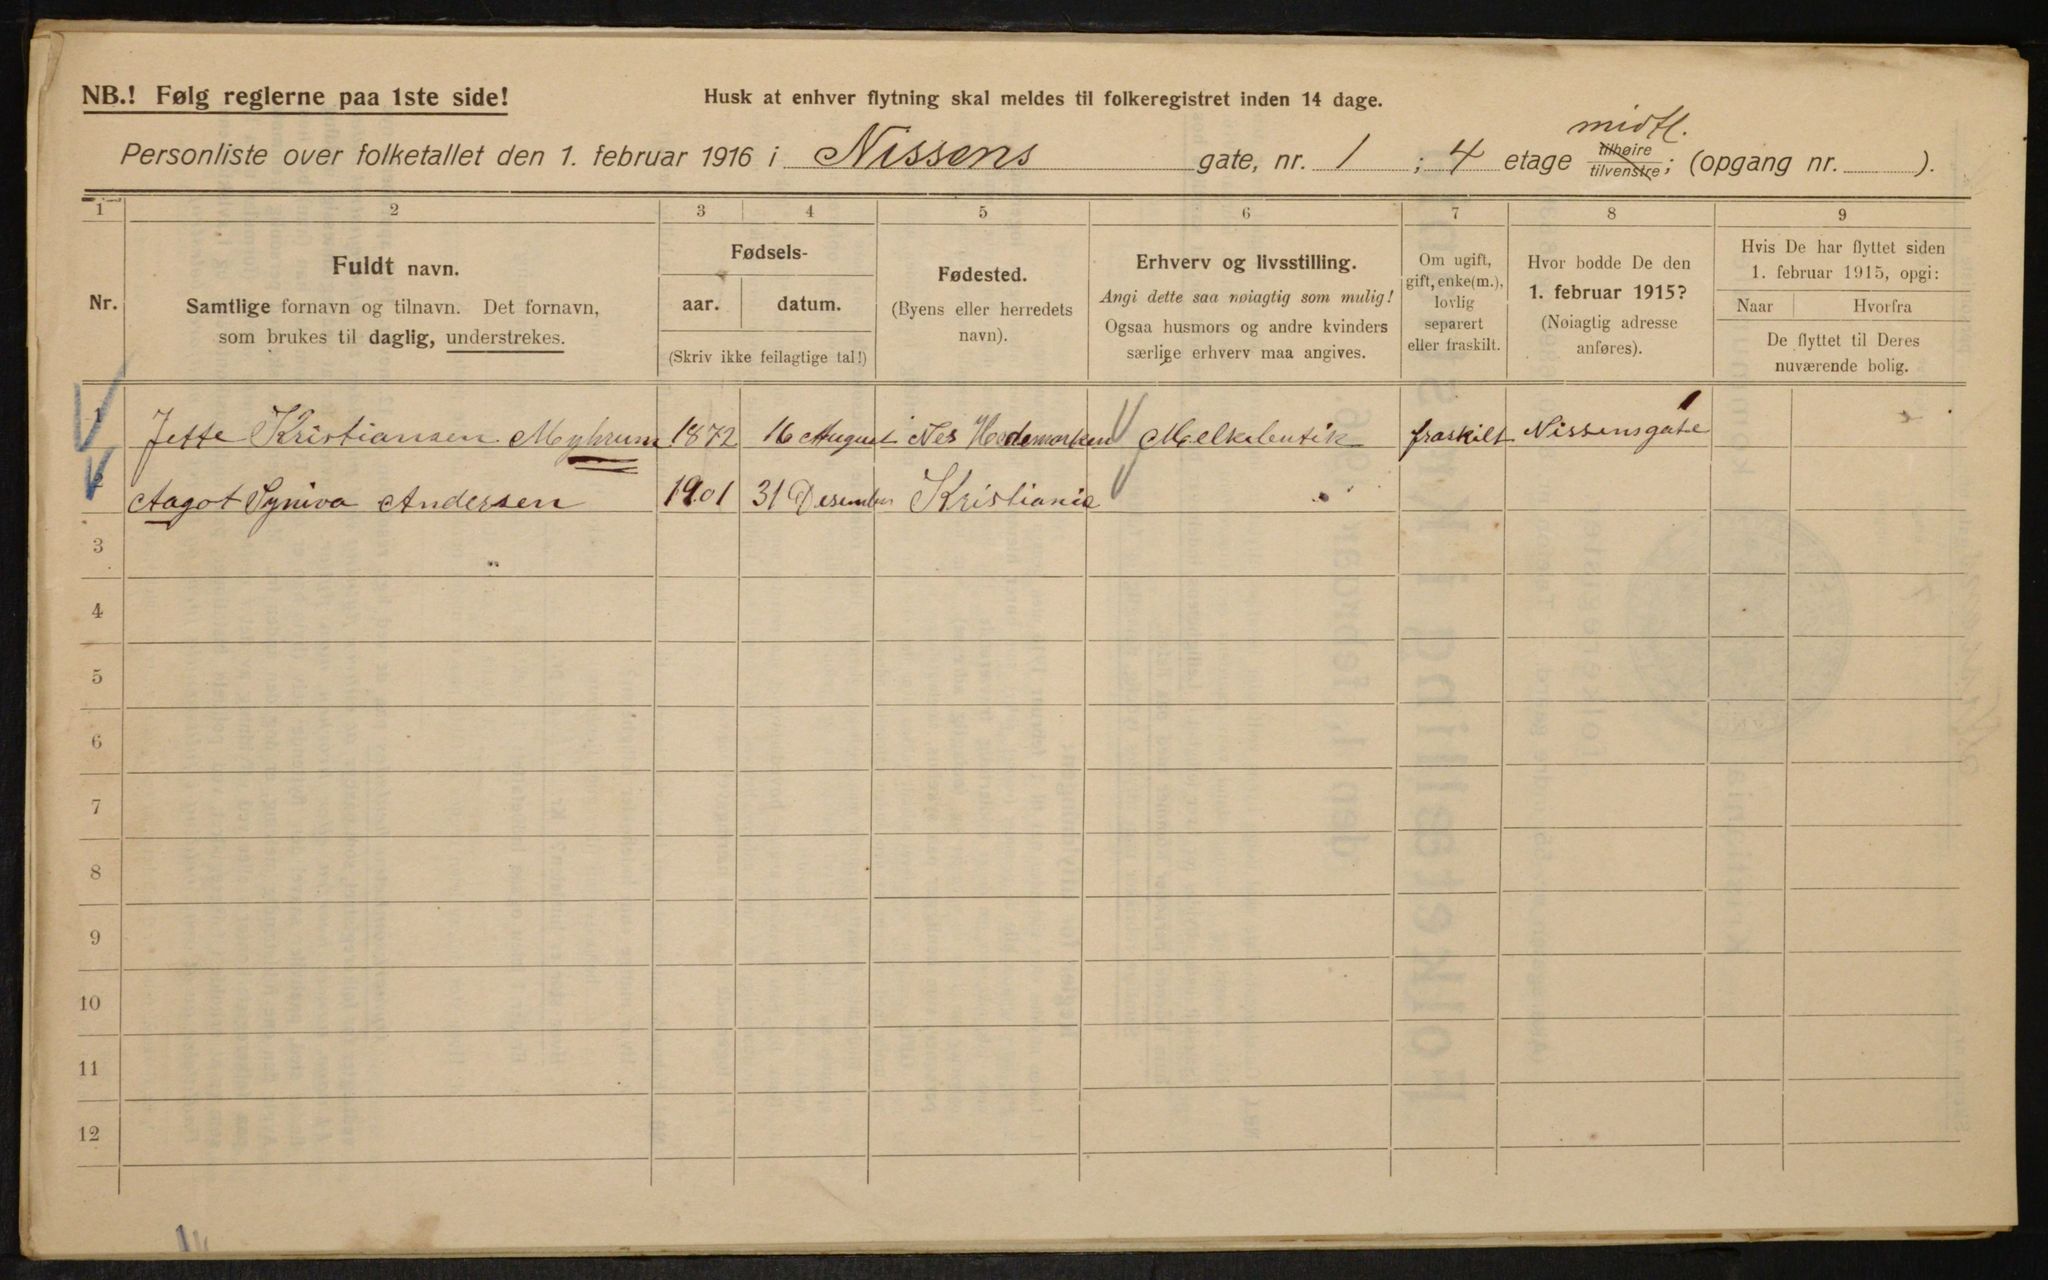 NB.! Følg reglerne paa 1ste side!
Husk at enhver flytning skal meldes til folkeregistret inden 14 dage.
midtl.
Personliste over folketallet den 1. februar 1916 i Nissens gate, nr. 1 ; 4 etage tilhøire tilvenstre; (opgang nr. ).
1 2 3 4 5 6 7 8 9
Nr.
Fuldt navn.
Samtlige fornavn og tilnavn. Det fornavn,
som brukes til daglig, understrekes.
Fødsels-
aar. datum.
(Skriv ikke feilagtige tal!)
Fødested.
(Byens eller herredets
navn).
Erhverv og livsstilling.
Angi dette saa nøiagtig som mulig!
Ogsaa husmors og andre kvinders
særlige erhverv maa angives.
Om ugift,
gift, enke(m.),
lovlig
separert
eller fraskilt.
Hvor bodde De den
1. februar 1915?
(Nøiagtig adresse
anføres).
Hvis De har flyttet siden
1. februar 1915, opgi:
Naar Hvorfra
De flyttet til Deres
nuværende bolig.
1 Jette Kristiansen Myhrum 1872 16 August Nes Hedemarken Melkebutik fraskilt Nissensgate 1
2 Aagot Syniva Andersen 1901 31 Desember Kristiania
3
4
5
6
7
8
9
10
11
12